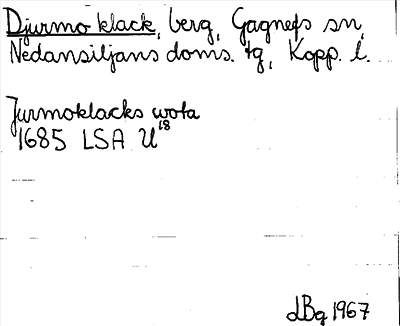 Djurmo klack, berg, Gagnefs sn,
Nedansiljans doms. tg, Kopp. l.
Jurmoklacks wota
1685 LSA U18
dBg 1967